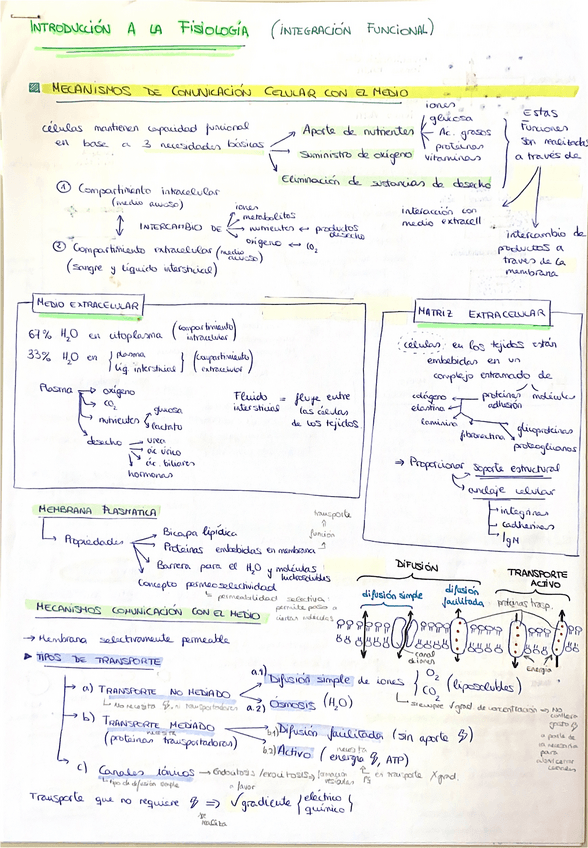 INTRODUCCIÓN A LA FISIOLOGÍA (INTEGRACIÓN FUNCIONAL)
MECANISMOS DE COMUNICACIÓN CELULAR CON EL MEDIO
células mantienen capacidad funcional
en base a 3 necesidades básicas
Aporte de nutrientes
iones
glucosa
Ac. grasos
proteínas
vitaminas
Suministro de oxígeno
Eliminación de sustancias de desecho
Estas
funciones
son realizadas
a través de
interacción con
medio extracell
intercambio de
productos a
través de la
membrana
① Compartimento intracelular
(medio acuoso)
INTERCAMBIO DE
iones
metabolitos
nutrientes ↔ productos
desecho
oxígeno ↔ CO2
② Compartimento extracelular (medio
acuoso)
(sangre y líquido intersticial)
MEDIO EXTRACELULAR
67% H2O en citoplasma (compartimento
intracelular)
33% H2O en { plasma
líq. intersticial } (compartimento
extracelular)
Plasma
oxígeno
CO2
nutrientes
glucosa
lactato
desecho
urea
ác. úrico
ác. biliares
hormonas
Fluido
intersticial = fluye entre
las células
de los tejidos
MATRIZ EXTRACELULAR
células en los tejidos están
embebidas en un
complejo entramado de
proteínas
adhesión
moléculas
colágeno
elastina
laminina
fibronectina
glicoproteínas
proteoglicanos
⇒ Proporcionar soporte estructural
anclaje celular
integrinas
cadherinas
IgM
MEMBRANA PLASMÁTICA
Propiedades
Bicapa lipídica
Proteínas embebidas en membrana
transporte
función
Barrera para el H2O y moléculas
hidrosolubles
Concepto permeoselectividad
permeabilidad selectiva:
permite paso a
ciertas moléculas
MECANISMOS COMUNICACIÓN CON EL MEDIO
→ Membrana selectivamente permeable
DIFUSIÓN
difusión simple
difusión
facilitada
TRANSPORTE
ACTIVO
proteínas transp.
canal
iones
Energía
▶ TIPOS DE TRANSPORTE
a) TRANSPORTE NO MEDIADO
No necesita transportadores
a.1) Difusión simple de iones { O2
CO2 } (liposolubles)
siempre gradiente de concentración
a.2) Osmosis (H2O)
b) TRANSPORTE MEDIADO
(proteínas transportadoras)
b1) Difusión facilitada (sin aporte)
b2) Activo (energía, ATP)
necesita
c) Canales iónicos → Endocitosis/exocitosis
tipo de difusión simple
Transporte que no requiere ⇒ gradiente { eléctrico
químico }
a favor